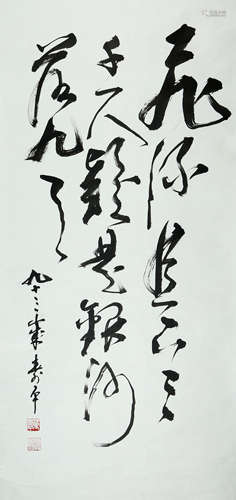 飛流直下三
千尺疑是銀河
落九天
九十三歲書於